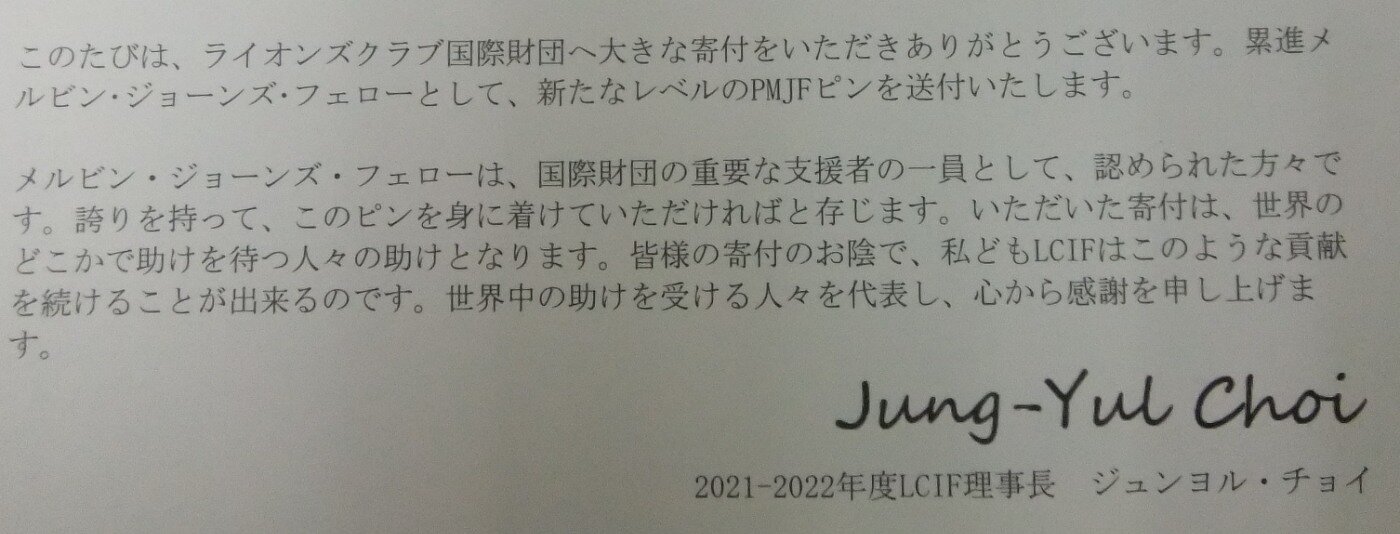 このたびは、ライオンズクラブ国際財団へ大きな寄付をいただきありがとうございます。累進メ
ルビン・ジョーンズ・フェローとして、新たなレベルのPMJFピンを送付いたします。
メルビン・ジョーンズ・フェローは、国際財団の重要な支援者の一員として、認められた方々で
す。誇りを持って、このピンを身に着けていただければと存じます。いただいた寄付は、世界の
どこかで助けを待つ人々の助けとなります。皆様の寄付のお陰で、私どもLCIFはこのような貢献
を続けることが出来るのです。世界中の助けを受ける人々を代表し、心から感謝を申し上げま
す。
Jung-Yul Choi
2021-2022年度LCIF理事長　ジュンヨル・チョイ